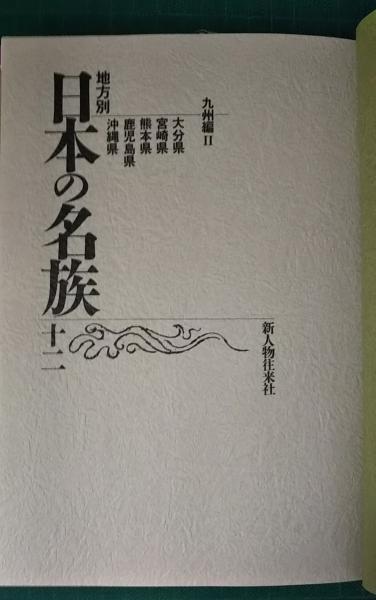 九州編II
大分県
宮崎県
熊本県
鹿児島県
沖縄県
地方別
日本の名族
十二
新人物往来社